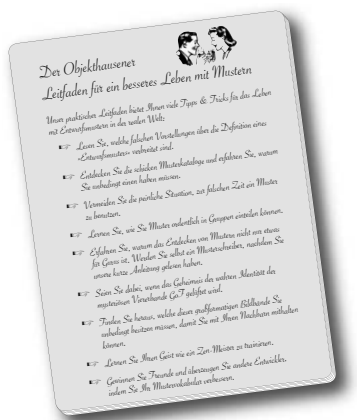 Der Objekthausener
Leitfaden für ein besseres Leben mit Mustern
Unser praktischer Leitfaden bietet Ihnen viele Tipps & Tricks für das Leben
mit Entwurfsmustern in der realen Welt:
Lesen Sie, welche falschen Vorstellungen über die Definition eines
»Entwurfsmusters« verbreitet sind.
Entdecken Sie die schicken Musterkataloge und erfahren Sie, warum
Sie unbedingt einen haben müssen.
Vermeiden Sie die peinliche Situation, zur falschen Zeit ein Muster
zu benutzen.
Lernen Sie, wie Sie Muster ordentlich in Gruppen einteilen können.
Erfahren Sie, warum das Entdecken von Mustern nicht nur etwas
für Gurus ist. Werden Sie selbst ein Musterschreiber, nachdem Sie
unsere kurze Anleitung gelesen haben.
Seien Sie dabei, wenn das Geheimnis der wahren Identität der
mysteriösen Viererbande GoF gelüftet wird.
Finden Sie heraus, welche dieser großformatigen Bildbände Sie
unbedingt besitzen müssen, damit Sie mit Ihren Nachbarn mithalten
können.
Lernen Sie Ihren Geist wie ein Zen-Meister zu trainieren.
Gewinnen Sie Freunde und überzeugen Sie andere Entwickler,
indem Sie Ihr Mustervokabular verbessern.